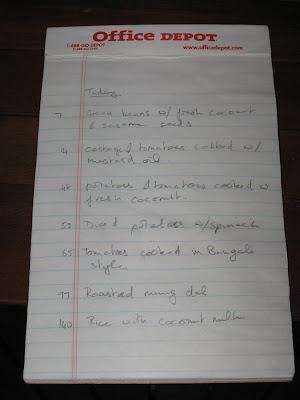 Office DEPOT
1-888-GO-DEPOT
www.officedepot.com
Today
7. Green beans w/ fresh coconut
& sesame seeds
cabbage & tomatoes cooked w/
mustard oil
48 potatoes & tomatoes cooked w
fresh coconut.
53 Diced potatoes w/spinach
65 Tomatoes cooked in Bengali
style
77 Roasted mung dal
140 Rice with coconut milk